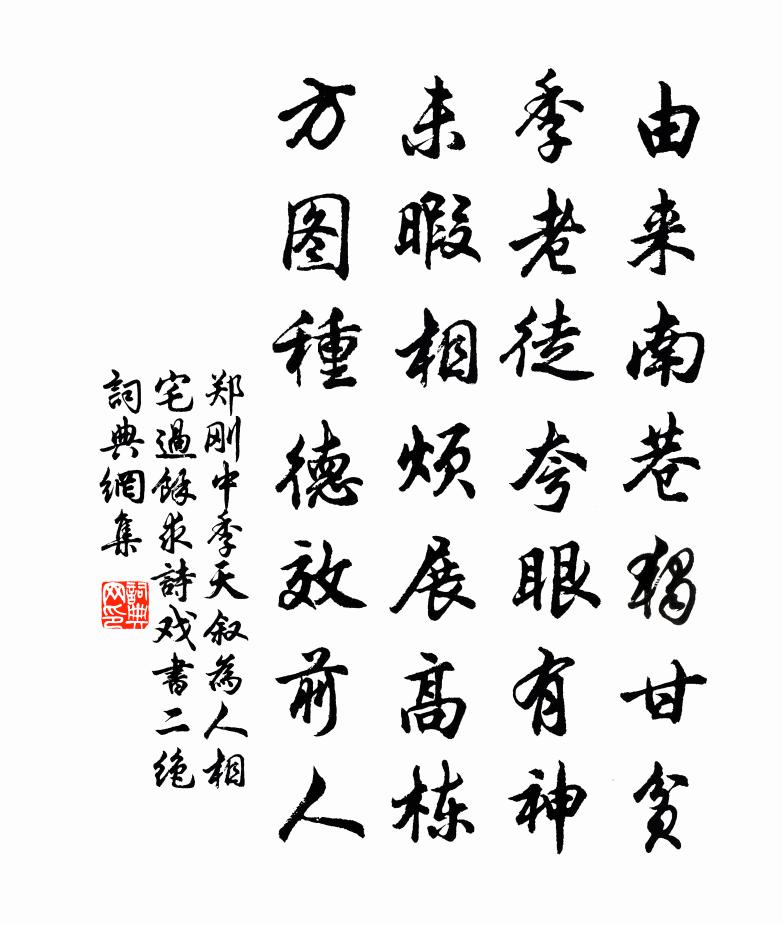 由来南巷獨甘貧
季老徒夸眼有神
未暇相煩展高栋
方图種德效前人
郑刚中季天叙為人相
宅過餘求詩戏書二绝
詞典網集
詞典网印